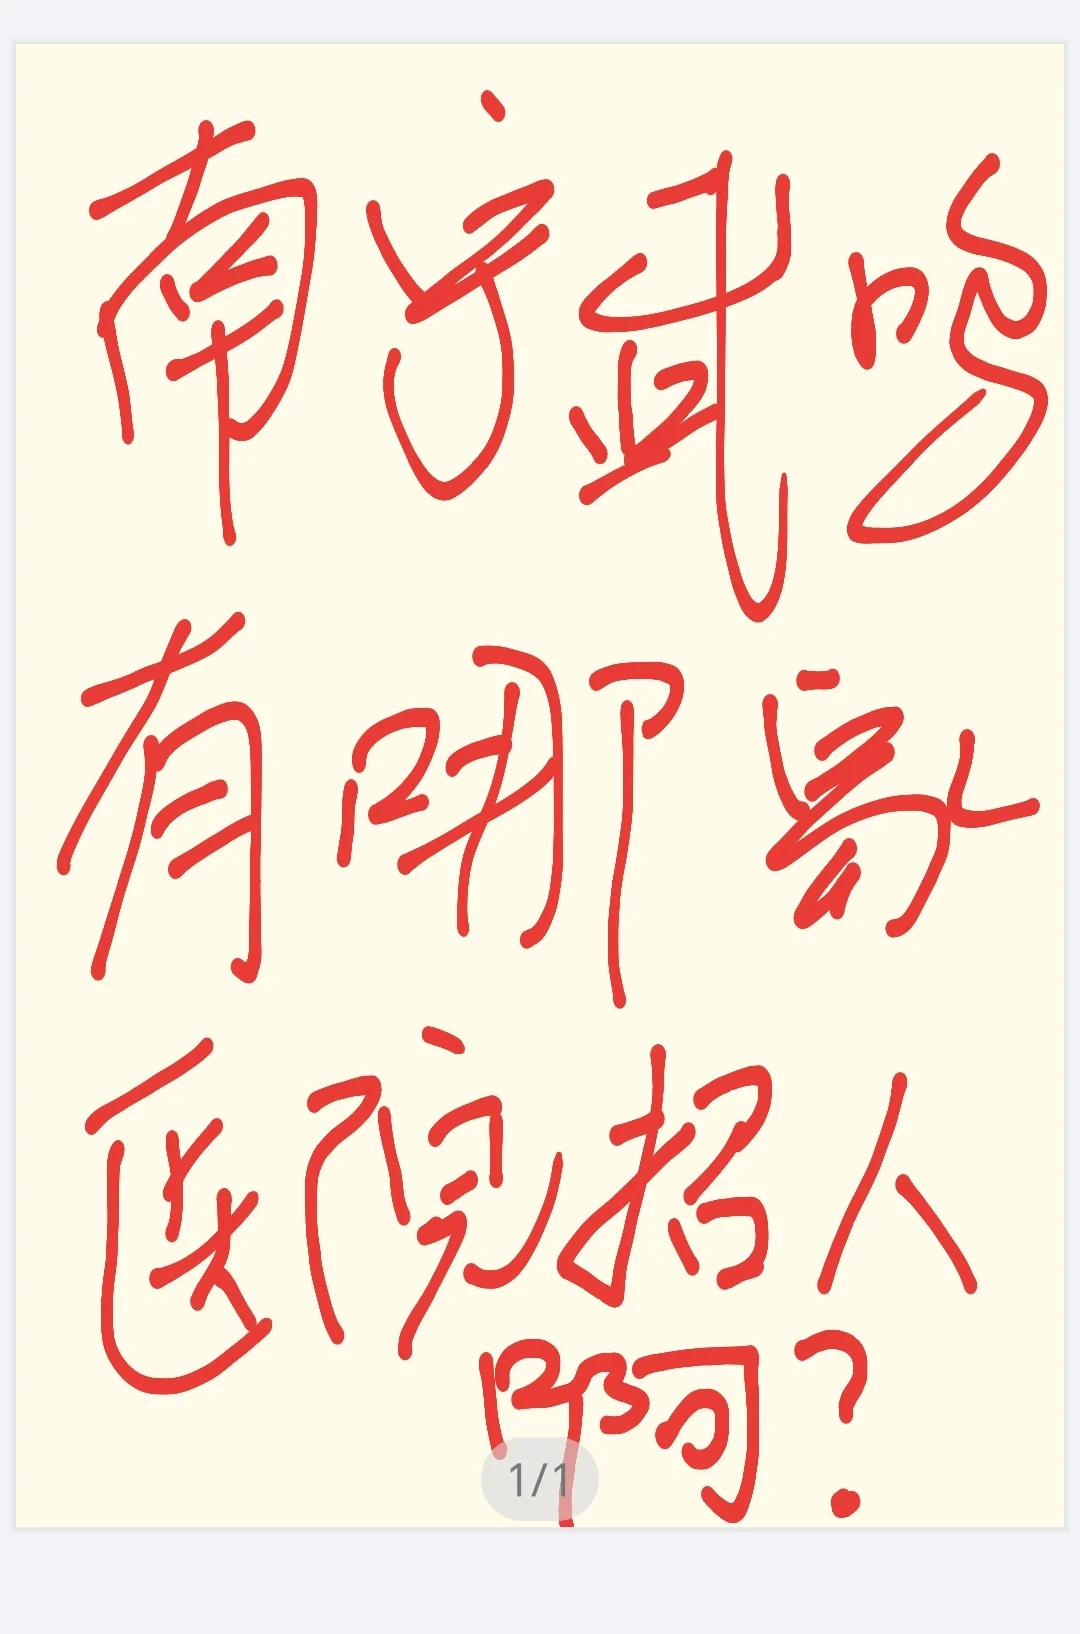 南宁武鸣
有哪家
医院招人
啊？
1/1